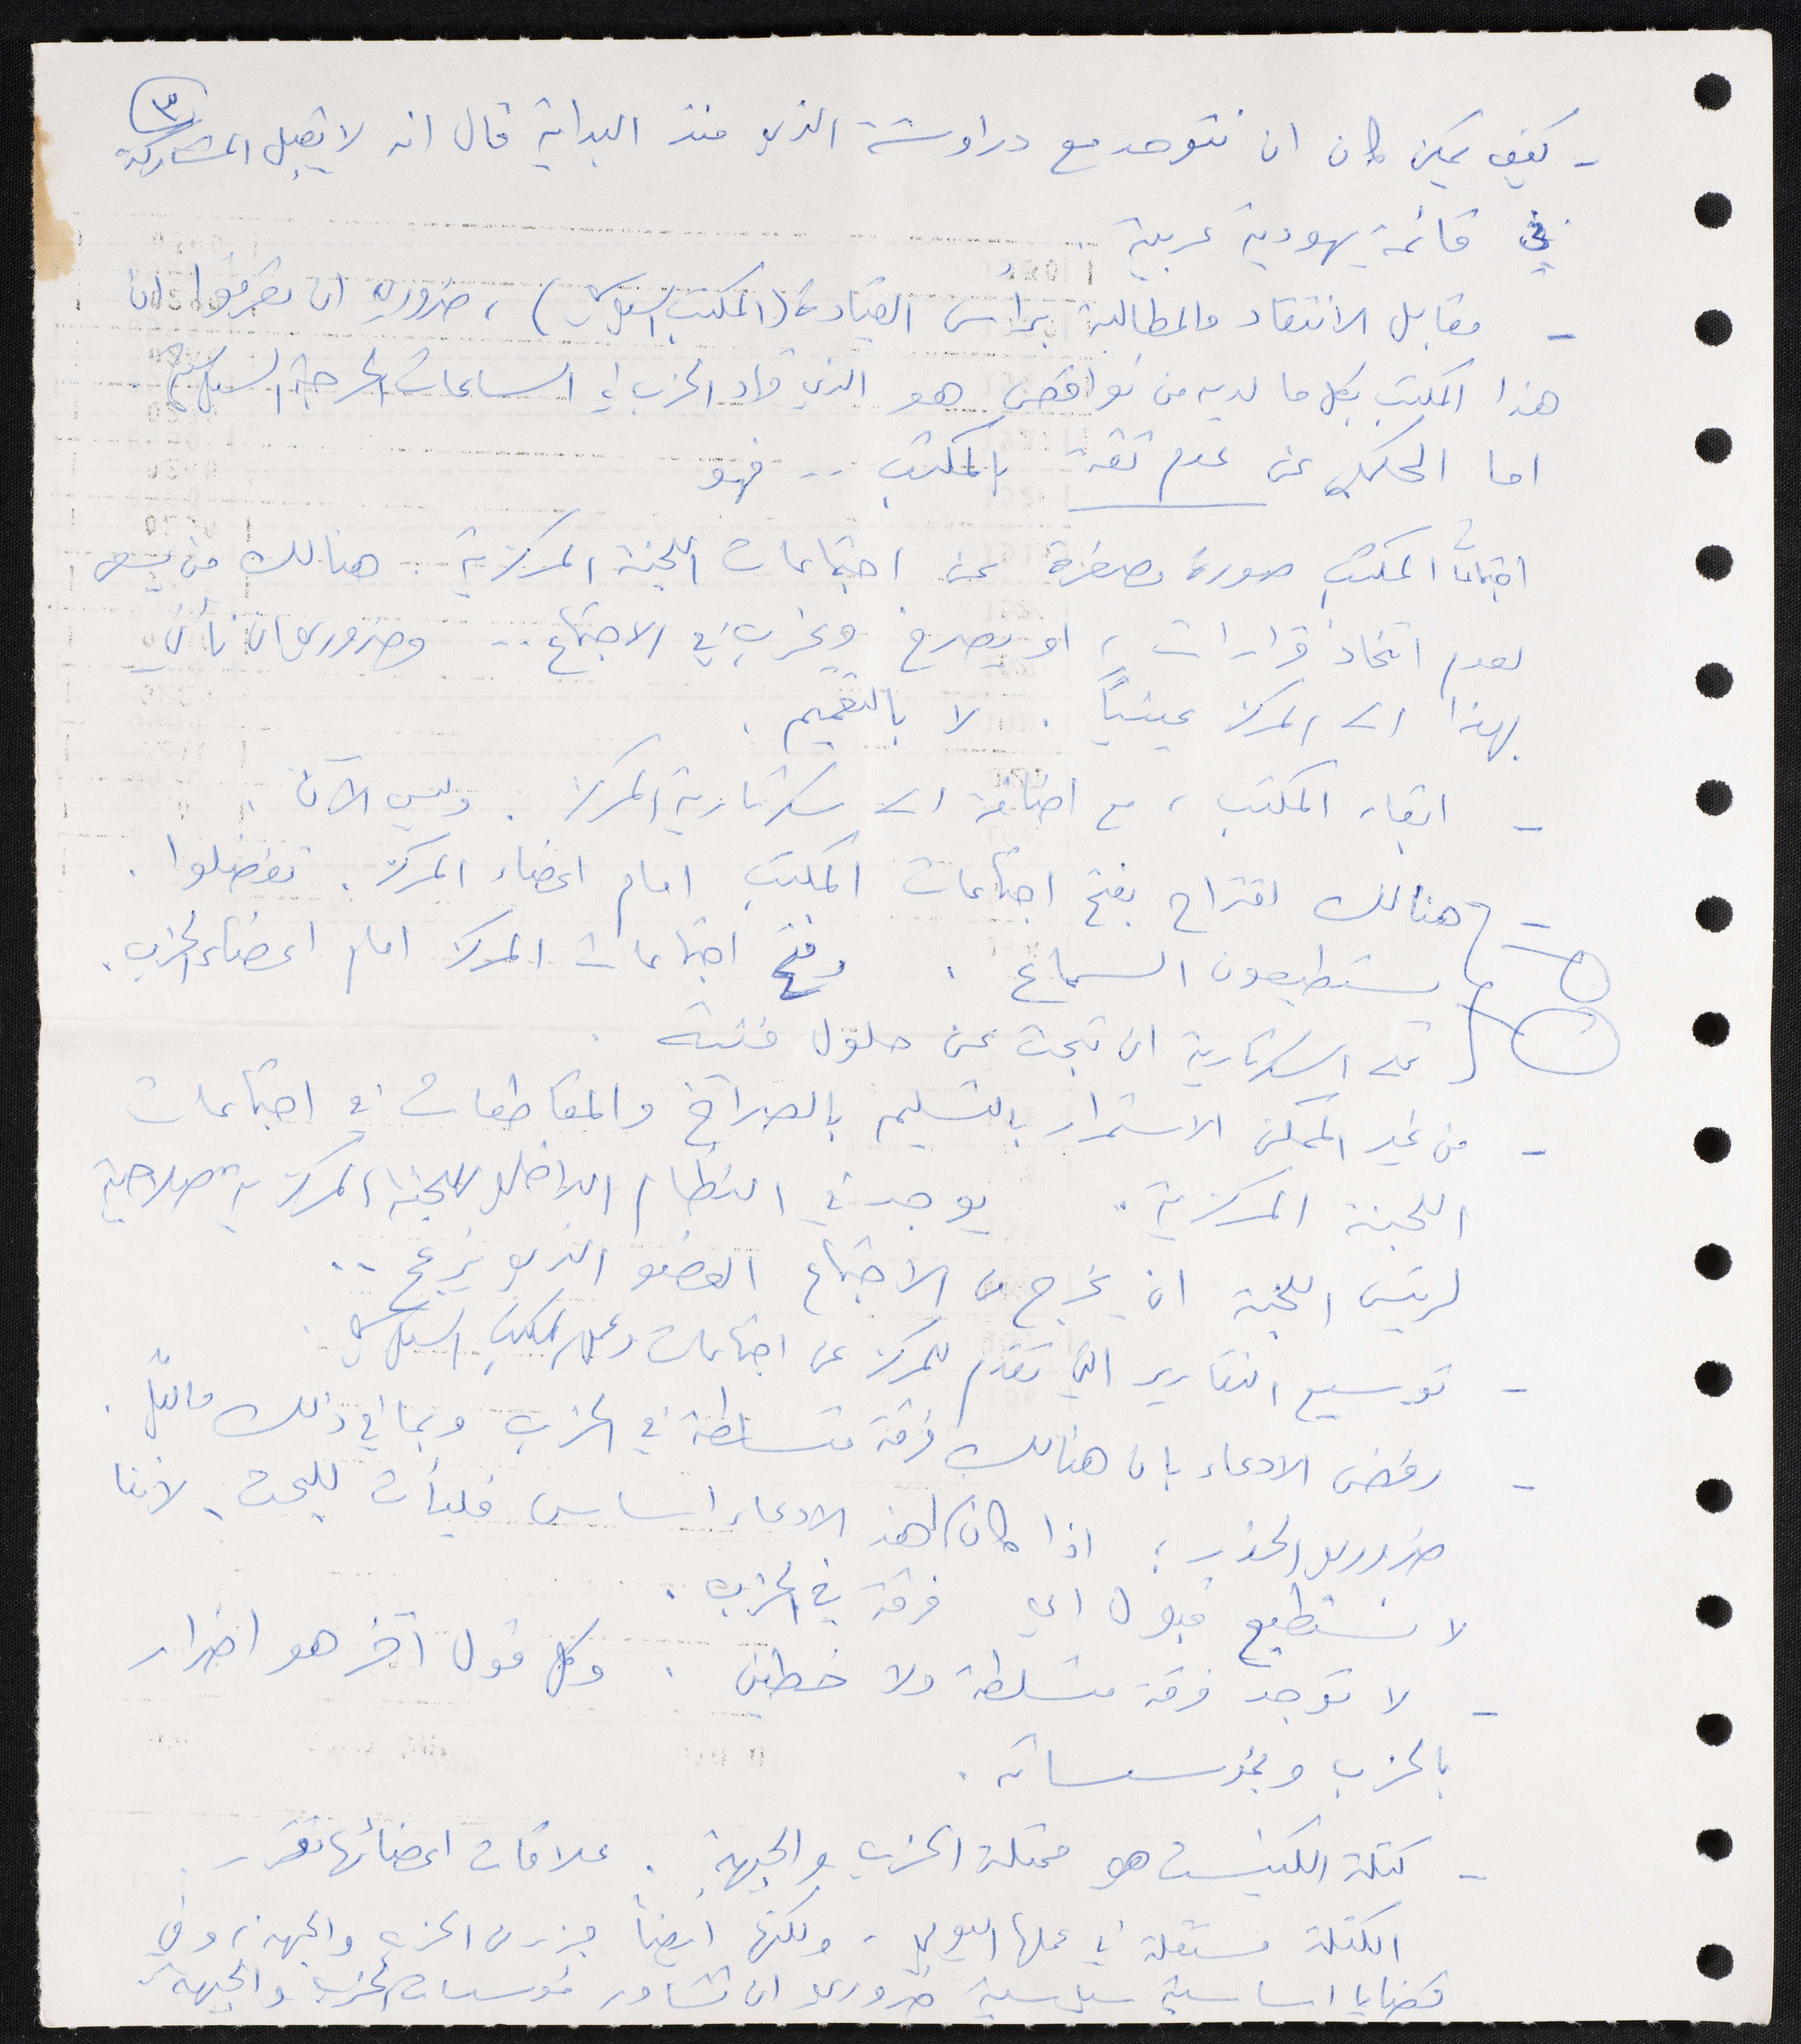 ٣
- كيف يمكن كان ان نتوحد مع دراوشة الذي منذ البداية قال انه لا يقبل المشاركة
في قائمة يهودية عربية .
- مقابل الانتقاد والمطالبة برأس القيادة (المكتب السياسي) ، ضروري ان تعرفوا ان
هذا المكتب بكل ما لديه من نواقص هو الذي قاد الحزب في الساعات الحرجة السياسية
اما الحكي عن عدم ثقة بالمكتب .. فهو
اجتماعات المكتب صورة مصغرة عن اجتماعات اللجنة المركزية . هنالك من يسعى
لعدم اتخاذ قرارات ، او يصرخ ويخرب في الاجتماع .. وضروري ان نأتي
بهذا الى المركز عينياً . لا بالتعميم .
- ابقاء المكتب ، مع اضافة الى سكرتارية المركز . وليس الآن .
- هنالك اقتراح بفتح اجتماعات المكتب امام اعضاء المركز . تفضلوا .
يستطيعون السماع . وفتح اجتماعات المركز امام اعضاء الحزب .
على السكرتارية ان تبحث عن حلول فنية .
- من غير الممكن الاستمرار بالتسليم بالصراخ والمقاطعات في اجتماعات
اللجنة المركزية . يوجد في النظام الداخلي للجنة المركزية صلاحية
لرئيس اللجنة ان يخرج من الاجتماع العضو الذي يزعج ..
- توسيع التقارير التي تقدم للمركز عن اجتماعات وعمل المكتب السياسي .
- رفض الادعاء بان هنالك فرقة متسلطة في الحزب وبما في ذلك مالياً .
ضروري الحذر ؛ اذا كان لهذا الادعاء اساس فليأت للبحث ، لاننا
لا نستطيع قبول اي فرقة في الحزب .
- لا توجد فرقة متسلطة ولا خطين . وكل قول آخر هو اضرار
بالحزب وبمؤسساته .
- كتلة الكنيست هو ممثلة الحزب والجبهة . علاقات اعضائها تقرر .
الكتلة مستقلة في عملها اليومي ، ولكنها ايضاً جزء من الحزب والجبهة ، وفي
قضايا اساسية سياسية ضروري ان تشاور مؤسسات الحزب والجبهة